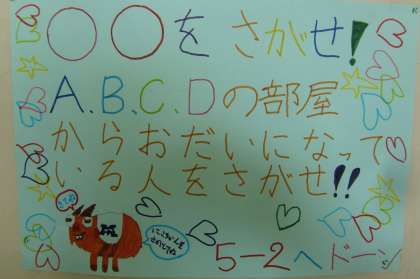 ○○をさがせ!
A.B.C.Dの部屋
からおだいになって
いる人をさがせ!!
5-2へドーン!